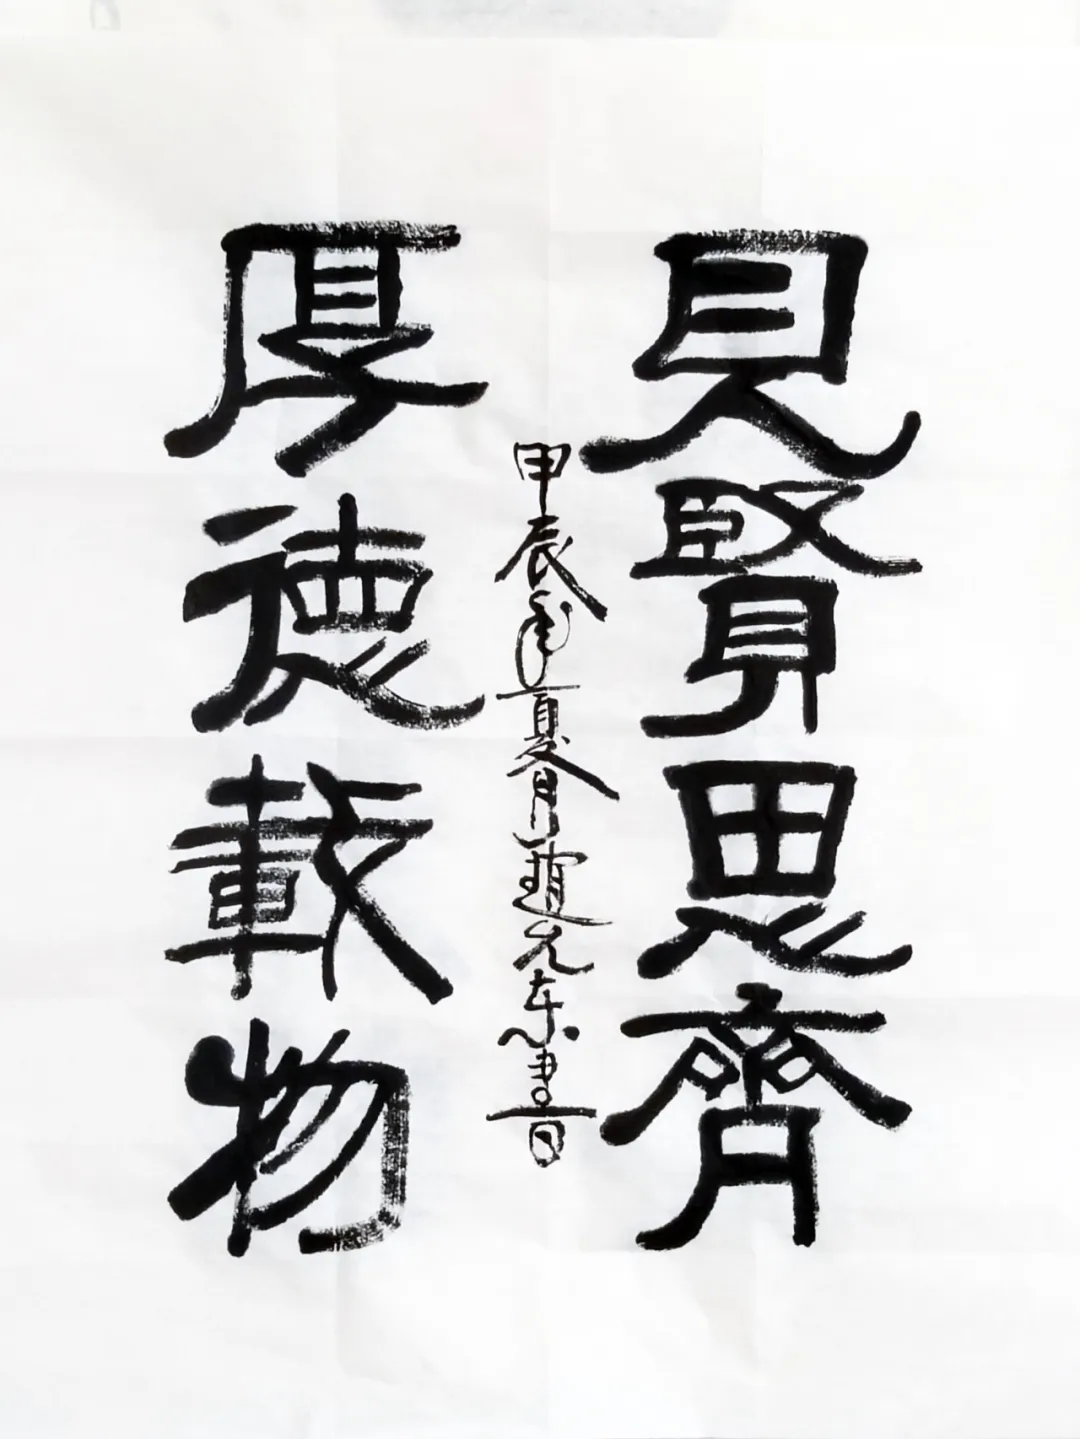 見賢思齊
厚德載物
甲辰年夏月趙允東書